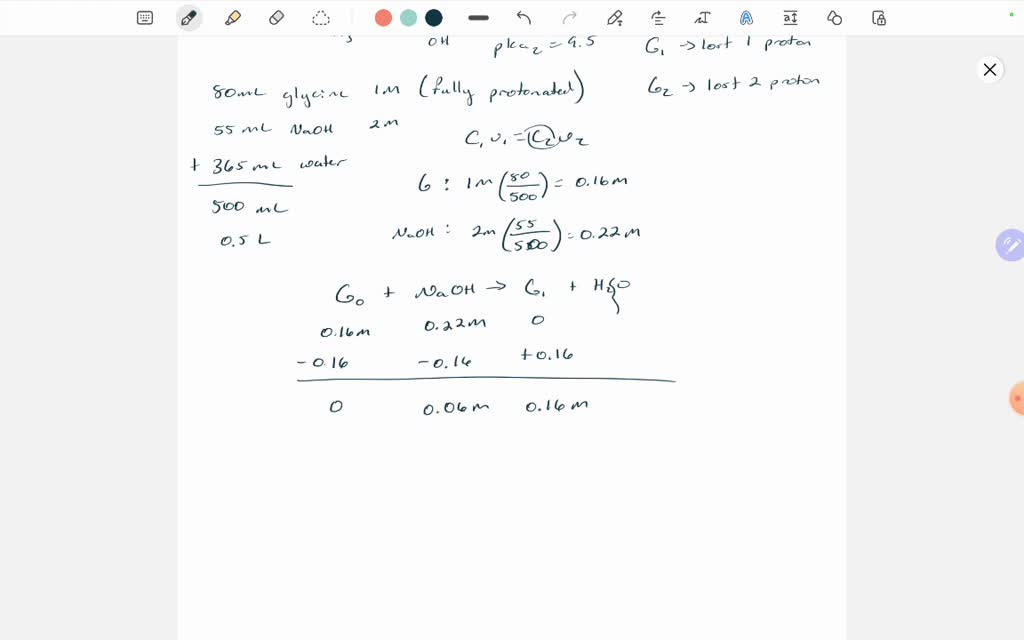 OH pka₂ = 9.5 G₁ → lost 1 proton
80mL glycine 1M (fully protonated) G₂ → lost 2 proton
55 mL NaOH 2M
C₁V₁ = C₂V₂
+ 365 mL water
G : 1M (80/500) = 0.16M
500 mL
NaOH : 2M (55/500) = 0.22M
0.5 L
G₀ + NaOH → G₁ + H₂O
0.16M 0.22M 0
-0.16 -0.16 +0.16
0 0.06M 0.16M